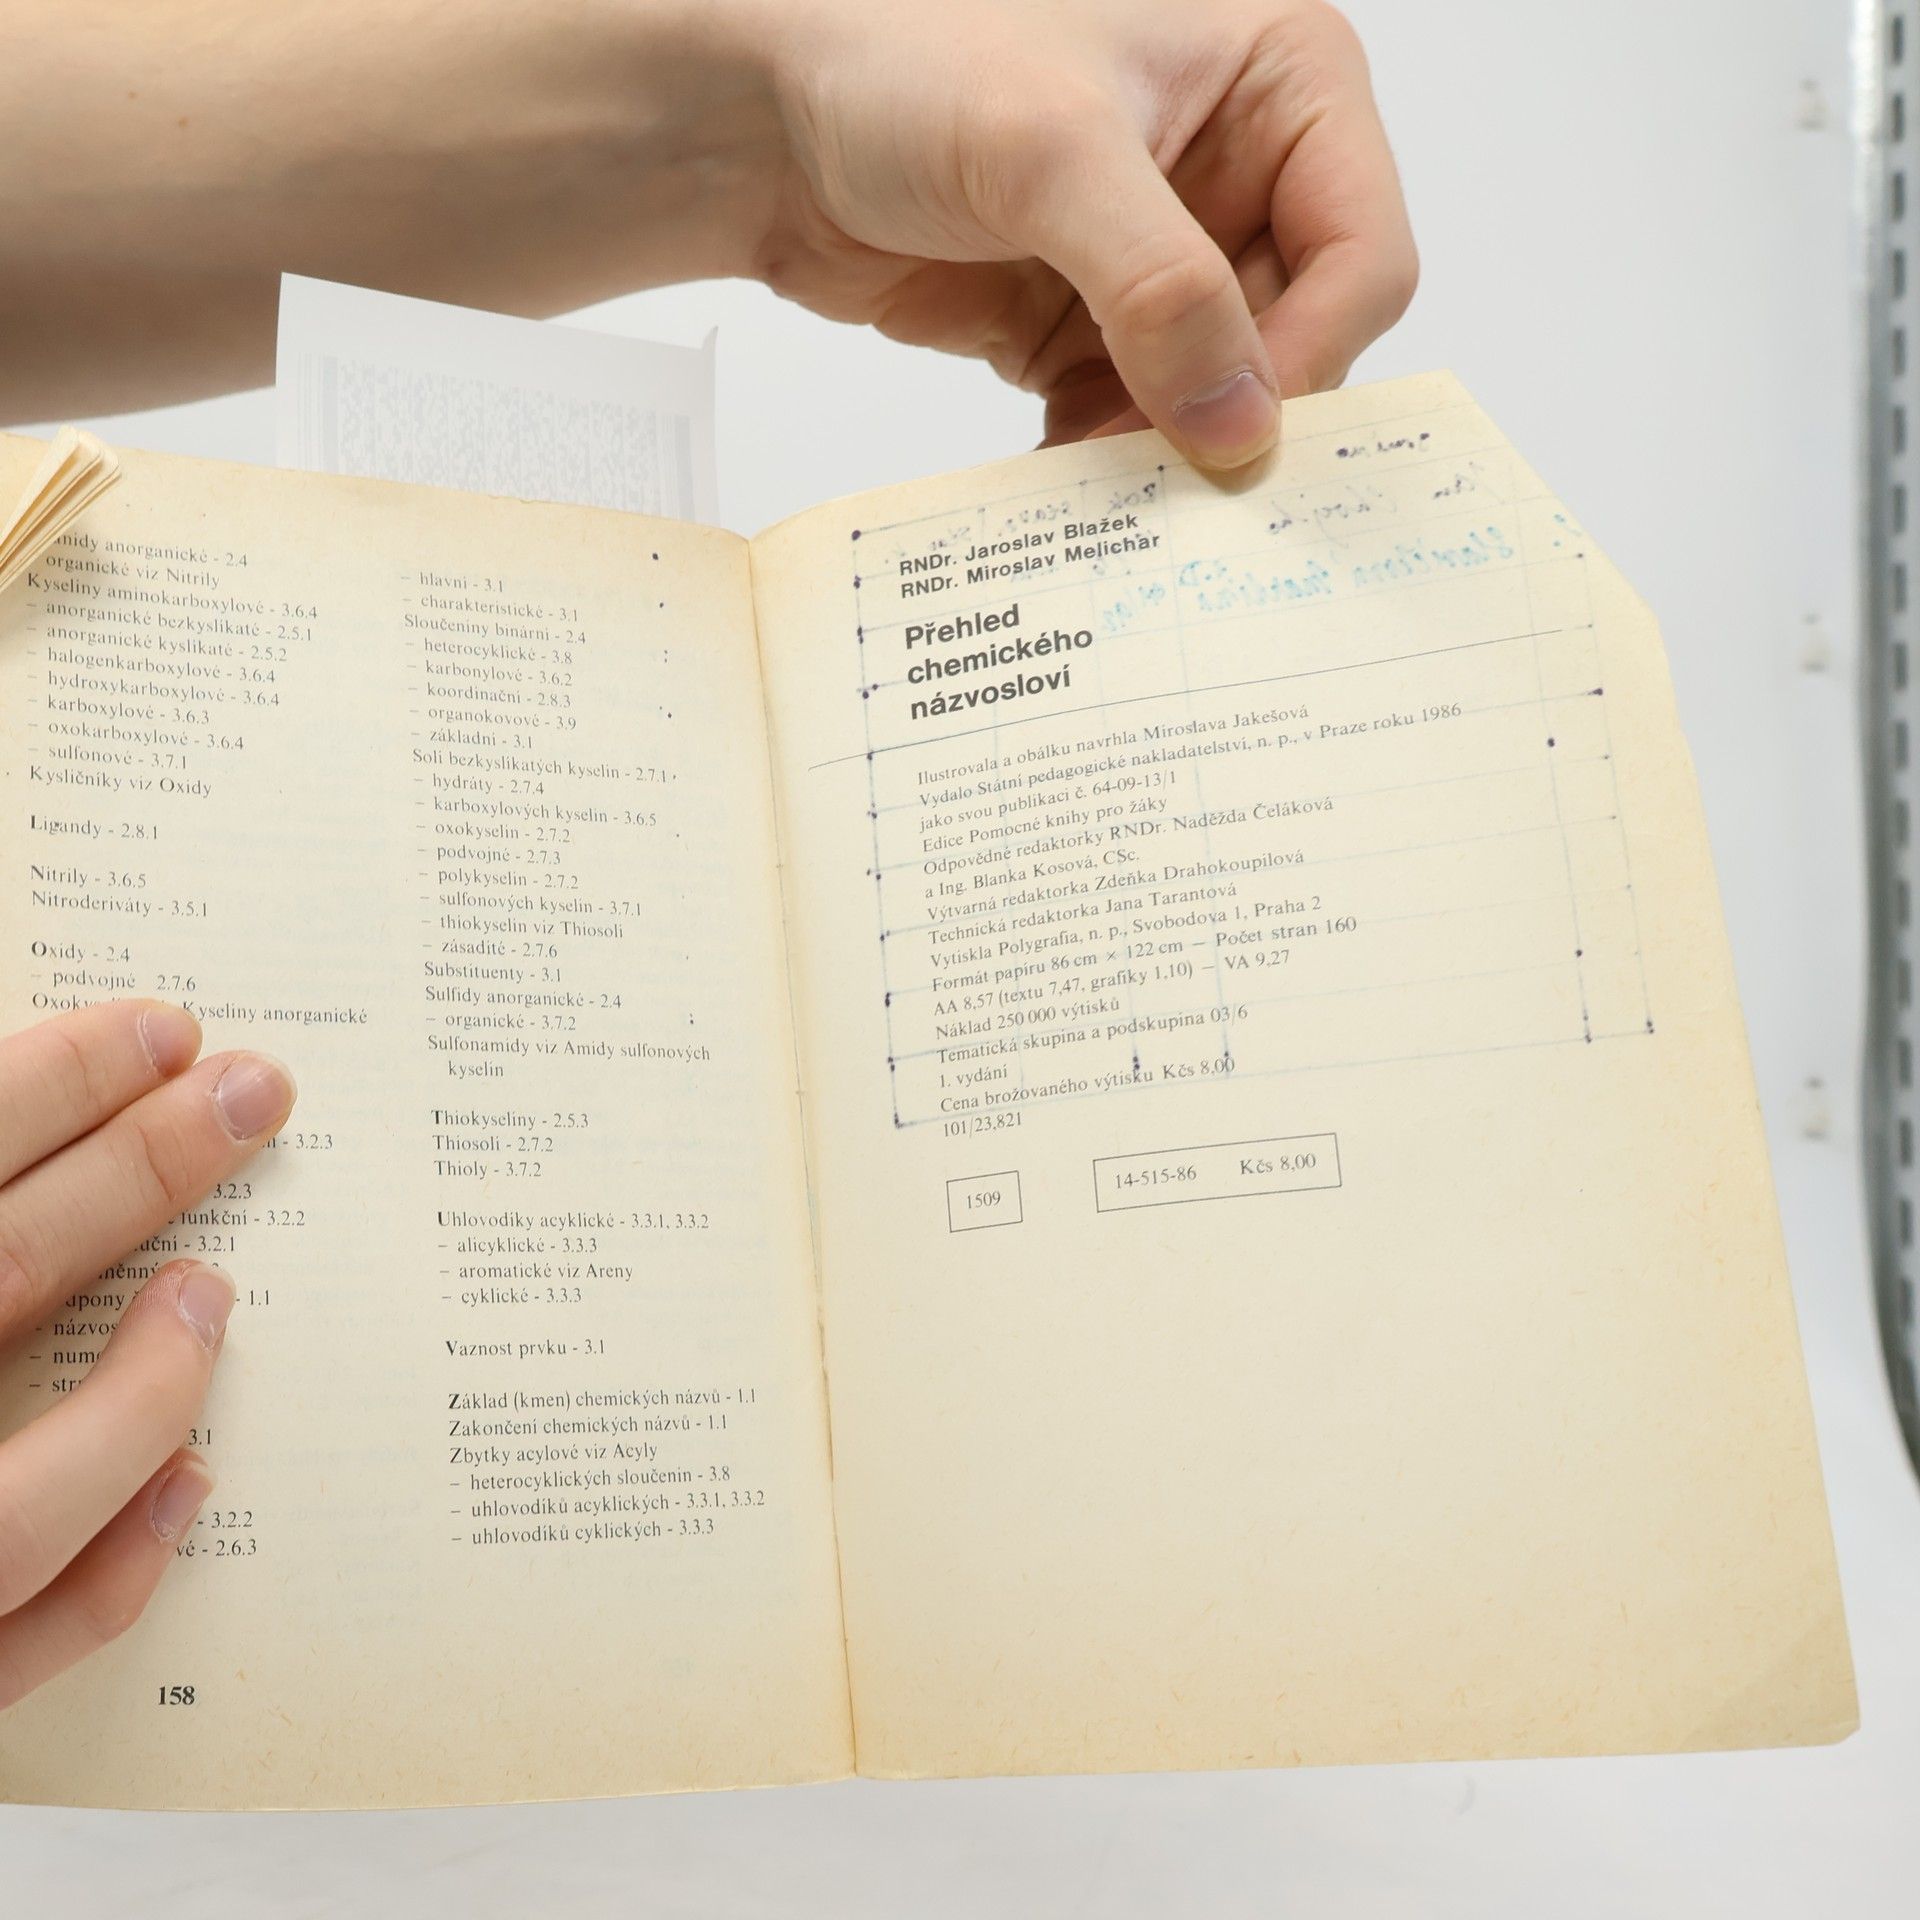 amidy anorganické - 2.4
organické viz Nitrily
Kyseliny aminokarboxylové - 3.6.4
– anorganické bezkyslíkaté - 2.5.1
– anorganické kyslíkaté - 2.5.2
– halogenkarboxylové - 3.6.4
– hydroxykarboxylové - 3.6.4
– karboxylové - 3.6.3
– oxokarboxylové - 3.6.4
– sulfonové - 3.7.1
Kysličníky viz Oxidy
Ligandy - 2.8.1
Nitrily - 3.6.5
Nitroderiváty - 3.5.1
Oxidy - 2.4
– podvojné 2.7.6
Kyseliny anorganické
- 3.2.3
3.2.3
funkční - 3.2.2
- 3.2.1
- 1.1
3.1
- 3.2.2
vé - 2.6.3
158
– hlavní - 3.1
– charakteristické - 3.1
Sloučeniny binární - 2.4
– heterocyklické - 3.8
– karbonylové - 3.6.2
– koordinační - 2.8.3
– organokovové - 3.9
– základní - 3.1
Soli bezkyslíkatých kyselin - 2.7.1
– hydráty - 2.7.4
– karboxylových kyselin - 3.6.5
– oxokyselin - 2.7.2
– podvojné - 2.7.3
– polykyselin - 2.7.2
– sulfonových kyselin - 3.7.1
– thiokyselin viz Thiosoli
– zásadité - 2.7.6
Substituenty - 3.1
Sulfidy anorganické - 2.4
– organické - 3.7.2
Sulfonamidy viz Amidy sulfonových
kyselin
Thiokyseliny - 2.5.3
Thiosoli - 2.7.2
Thioly - 3.7.2
Uhlovodíky acyklické - 3.3.1, 3.3.2
– alicyklické - 3.3.3
– aromatické viz Areny
– cyklické - 3.3.3
Vaznost prvku - 3.1
Základ (kmen) chemických názvů - 1.1
Zakončení chemických názvů - 1.1
Zbytky acylové viz Acyly
– heterocyklických sloučenin - 3.8
– uhlovodíků acyklických - 3.3.1, 3.3.2
– uhlovodíků cyklických - 3.3.3
RNDr. Jaroslav Blažek
RNDr. Miroslav Melichar
Přehled
chemického
názvosloví
Ilustrovala a obálku navrhla Miroslava Jakešová
Vydalo Státní pedagogické nakladatelství, n. p., v Praze roku 1986
jako svou publikaci č. 64-09-13/1
Edice Pomocné knihy pro žáky
Odpovědné redaktorky RNDr. Naděžda Čeláková
a Ing. Blanka Kosová, CSc.
Výtvarná redaktorka Zdeňka Drahokoupilová
Technická redaktorka Jana Tarantová
Vytiskla Polygrafia, n. p., Svobodova 1, Praha 2
Formát papíru 86 cm × 122 cm — Počet stran 160
AA 8,57 (textu 7,47, grafiky 1,10) — VA 9,27
Náklad 250 000 výtisků
Tematická skupina a podskupina 03/6
1. vydání
Cena brožovaného výtisku Kčs 8,00
101/23,821
1509
14-515-86 Kčs 8,00